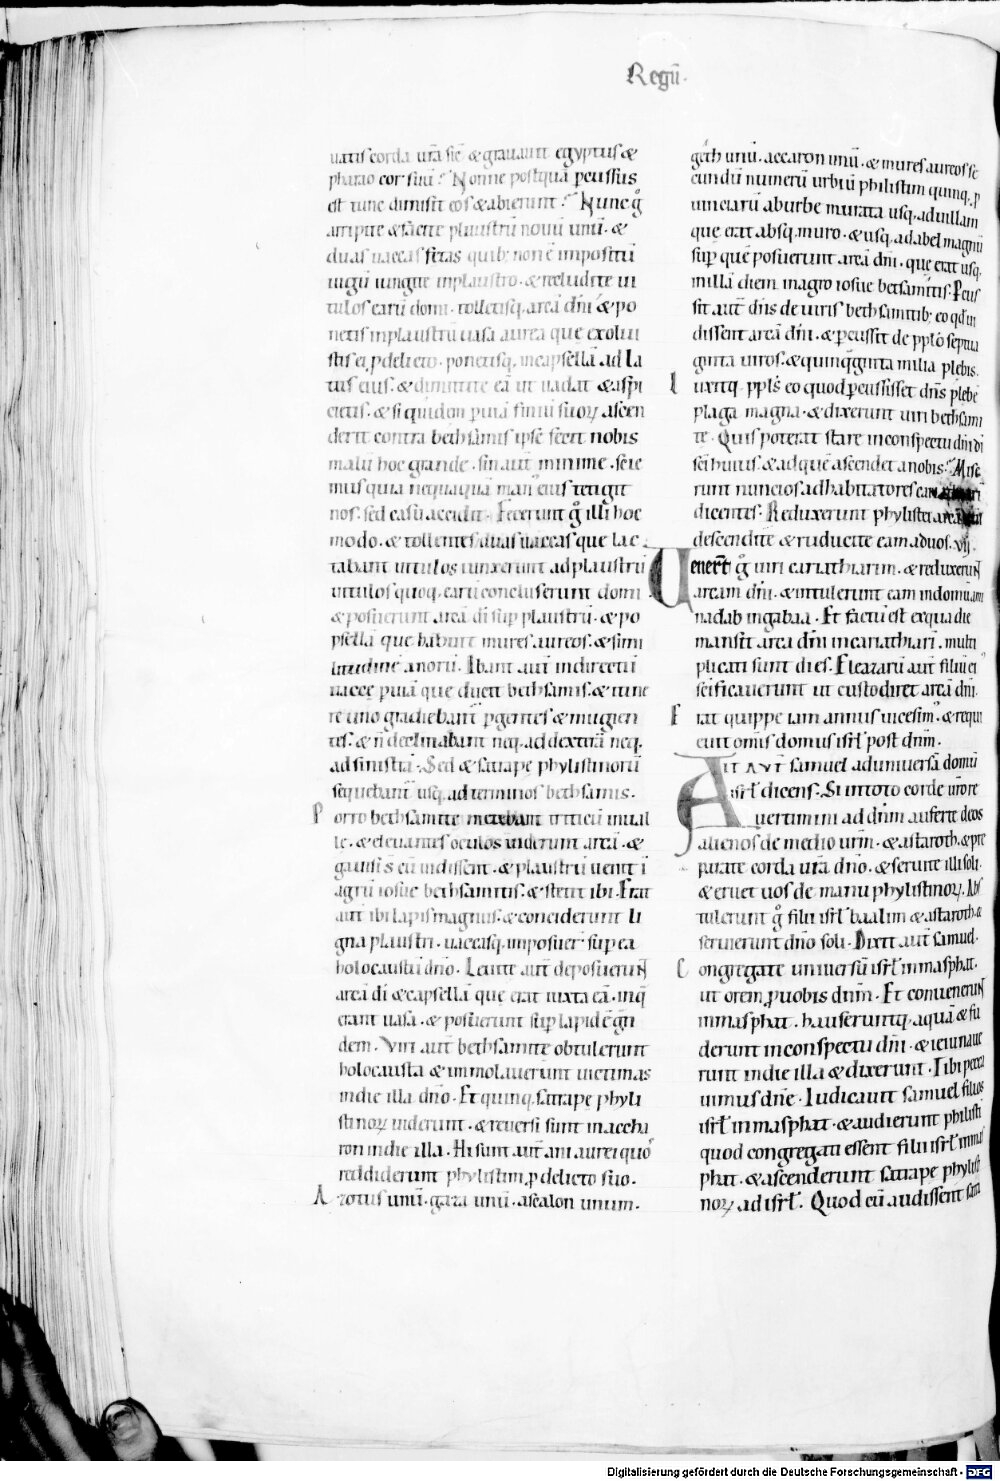 Regū.
uatis corda ur̄a sic̄ & grauauit egyptus &
pharao cor suū? Nonne postquā percussus
est tunc dimisit eos & abierunt? Nunc g̊
arripite & facite plaustrū nouū unū. &
duas uaccas fetas quib; non ē impositū
iugū iungite in plaustro. & recludite ui
tulos earū domi. tolletisq, arcā dn̄i & po
netis in plaustrū uasa aurea que exolui
stis ei p delicto. ponetisq, in capsellā ad la
tus eius. & dimittite eā ut uadat & aspi
cietis. & si quidem p uiā finiū suoꝝ ascen
derit contra bethsamis ipse fecit nobis
malū hoc grande. sin aut̄ minime. scie
mus quia nequaquā man' eius tetigit
nos. sed casu accidit. Fecerunt g̊ illi hoc
modo. & tollentes duas uaccas que lac
tabant uitulos iunxerunt ad plaustrū
uitulosquoq, earū concluserunt domi
& posuerunt arcā di sup plaustrū. & ca
psellā que habuit mures aureos. & simi
litudinē anorū. Ibant aut̄ in directū
uaccę p uiā que ducit bethsamis. & itine
re uno gradiebant̄ pgentes & mugien
tes. & ñ declinabant neq, ad dextrā neq,
ad sinistrā. Sed & satrape phylistinorū
sequebant̄ usq, ad terminos bethsamis.
Porro bethsamite metebant triticū in ual
le. & eleuantes oculos uiderunt arcā. &
gauisi s̄ cū uidissent. & plaustrū uenit ī
agrū iosue bethsamitis. & stetit ibi. Erat
aut̄ ibi lapis magnus. & conciderunt li
gna plaustri. uaccasq, imposuer̄ sup ea
holocaustū dn̄o. Leuite aut̄ deposuerunt
arcā di & capsellā que erat iuxta eā. in q̄
erant uasa. & posuerunt sup lapidē gn̄
dem. Viri aut̄ bethsamite obtulerunt
holocausta & immolauerunt uictimas
in die illa dn̄o. Et quinq, satrape phyli
stinoꝝ uiderunt. & reuersi sunt in accha
ron in die illa. Hi sunt aut̄ ani aurei quo̊
reddiderunt phylistim p delicto suo.
Azotus unū. gaza unū. ascalon unum.
geth unū. accaron unū. & mures aureos se
cundū numerū urbiū philistim quinq, p
uinciarū ab urbe murata usq, ad uillam
que erat absq, muro. & usq, ad abel magnū
sup quē posuerunt arcā dn̄i. que erat usq,
in illā diem in agro iosue bethsamitis. Pcus
sit aut̄ dn̄s de uiris bethsamitib; eo qd ui
dissent arcā dn̄i. & pcussit de pplō septua
ginta uiros. & quinq̄ginta milia plebis.
Luxitq, ppl's eo quod pcussisset dn̄s plebē
plaga magna. & dixerunt uiri bethsami
te. Quis poterit stare in conspectu dn̄i di
sc̄i huius. & ad quē ascendet a nobis? Mise
runt nuncios ad habitatores
dicentes. Reduxerunt phylistei arcā
descendite & reducite eam ad uos. vij.
Uenert̄ g̊ uiri cariathiarim. & reduxerunt
arcam dn̄i. & intulerunt eam in domū ami
nadab in gabaa. Et factū est ex qua die
mansit arca dn̄i in cariathiari. multi
plicati sunt dies. Eleazarū aut̄ filiū ei'
sc̄ificauerunt ut custodiret arcā dn̄i.
Erat quippe iam annus uicesim'. & requi
euit omīs domus isrl' post dn̄m.
AIT AVT̄ samuel ad uniuersā domū
isrl' dicens. Si in toto corde ur̄o re
uertimini ad dn̄m auferte deos
alienos de medio ur̄m. & astaroth. & pre
parate corda ur̄a dn̄o. & seruite illi soli.
& eruet uos de manu phylistinoꝝ. Abs
tulerunt g̊ filii isrl' baalim & astaroth. &
seruierunt dn̄o soli. Dixit aut̄ samuel.
Congregate uniuersū isrl' in masphat.
ut orem p uobis dn̄m. Et conuenerunt
in masphat. hauseruntq, aquā & fu
derunt in conspectu dn̄i. & ieiunaue
runt in die illa & dixerunt. Tibi pecca
uimus dn̄e. Iudicauit samuel filios
isrl' in masphat. & audierunt philisti
quod congregati essent filii isrl' in mas
phat. & ascenderunt satrape phylisti
noꝝ ad isrl'. Quod cū audissent
Digitalisierung gefördert durch die Deutsche Forschungsgemeinschaft - DFG